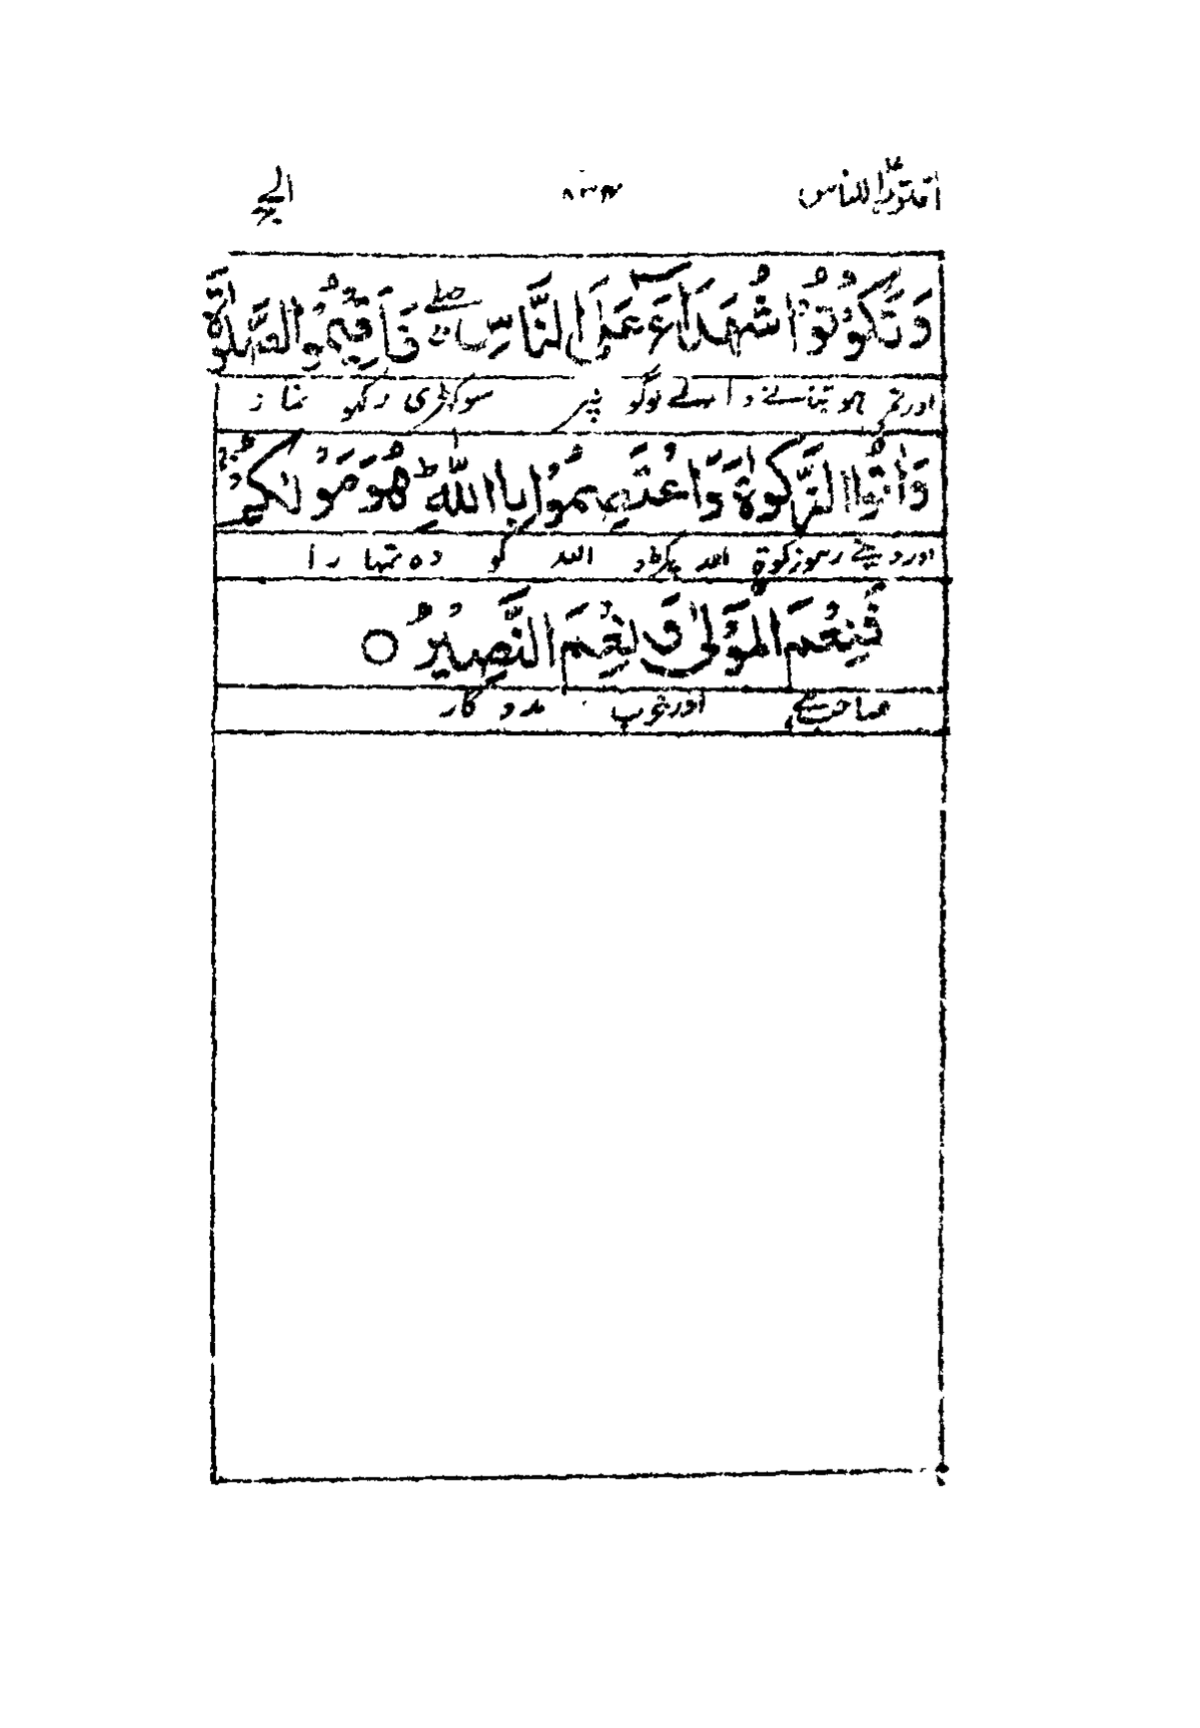 اقترب للناس ۸۳۴ الحج
وَتَكُوْنُوْا شُهَدَآءَ عَلَى النَّاسِ ۖ فَاَقِيْمُوا الصَّلٰوةَ
اور تم ہو بتانے والے لوگو پر سو کھڑی رکھو نماز
وَاٰتُوا الزَّكٰوةَ وَاعْتَصِمُوْا بِاللّٰهِ ؕ هُوَ مَوْلٰىكُمْ ۚ
اور دیتے رہو زکوۃ اور پکڑو اللہ کو وہ تمہارا
فَنِعْمَ الْمَوْلٰى وَنِعْمَ النَّصِيْرُ ○
صاحب ہے اور خوب مددگار